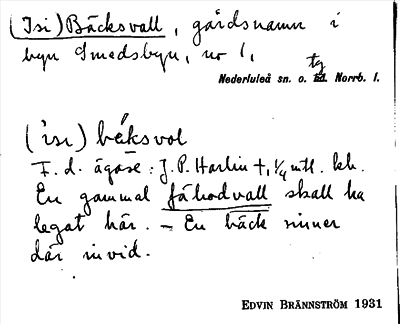 (Isi) Bäcksvall, gårdsnamn i
byn Smedsbyn, no 1,
Nederluleå sn. o. tg Norrb. l.
(ısı) béksvol
F. d. ägare: J. P. Harlin †, 1/4 mtl. kh.
En gammal fäbodvall skall ha
legat här. – En bäck rinner
där invid.
EDVIN BRÄNNSTRÖM 1931